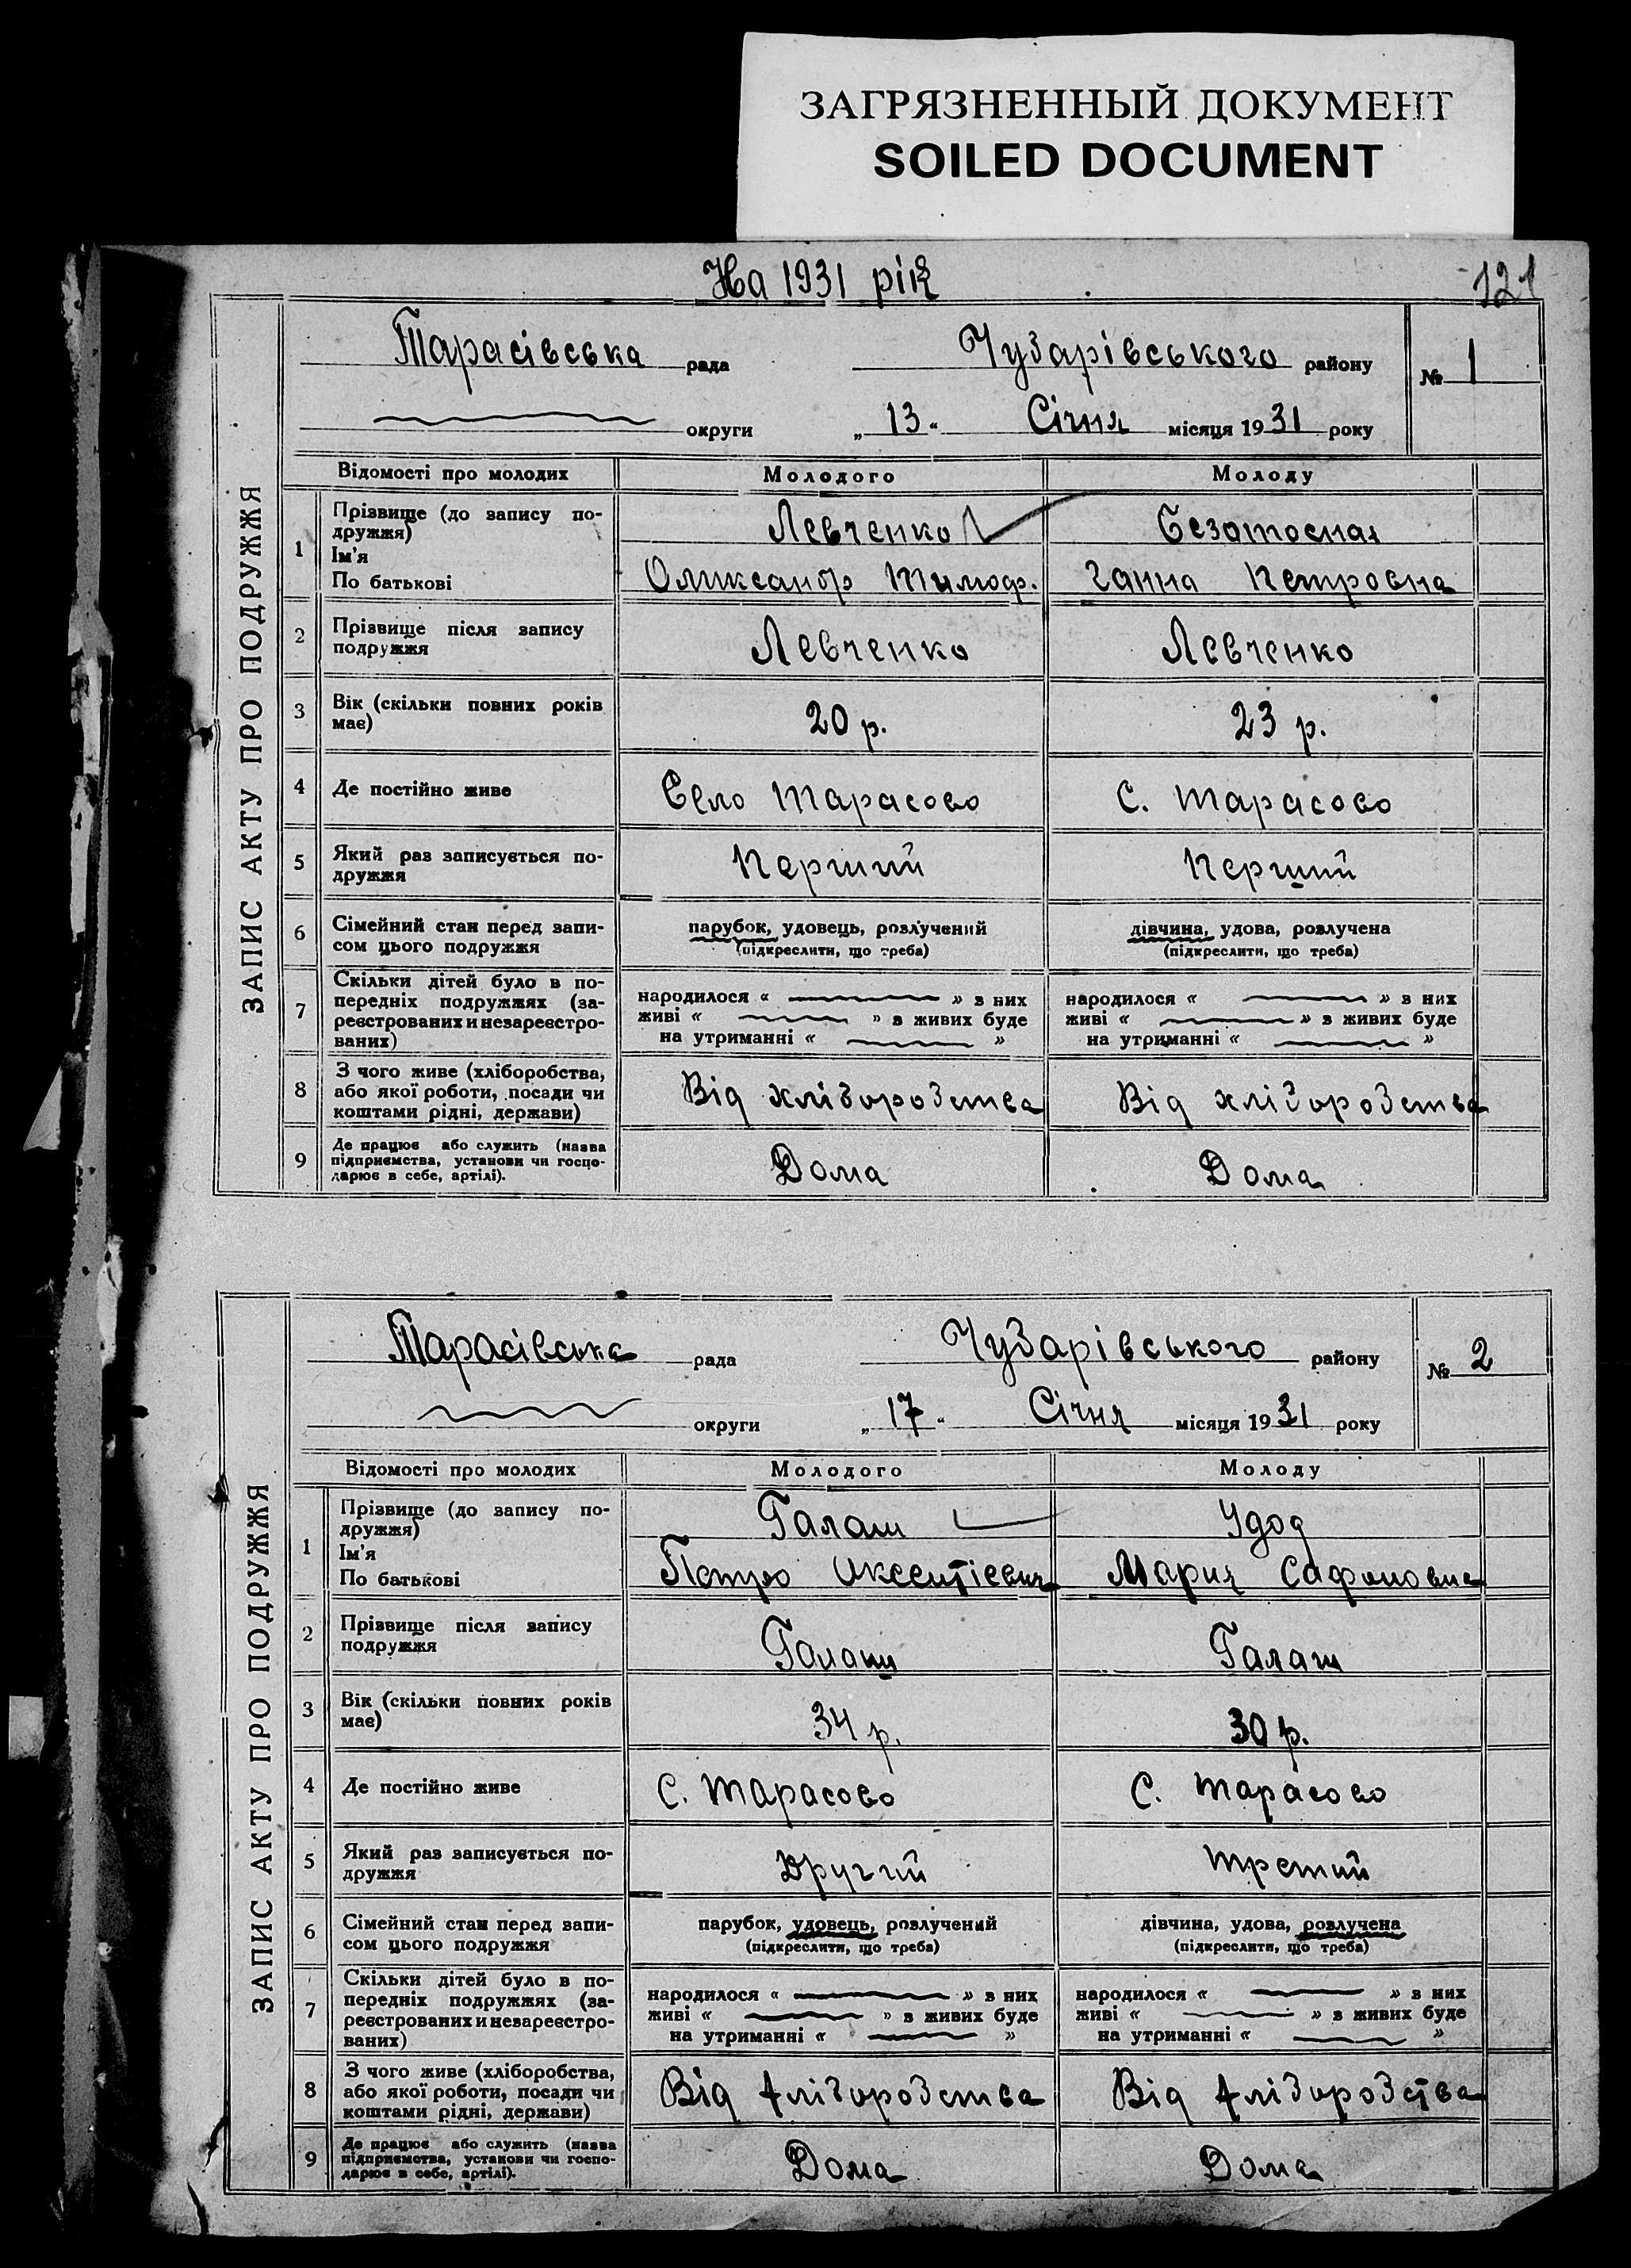 ЗАГРЯЗНЕННЫЙ ДОКУМЕНТ
SOILED DOCUMENT
На 1931 рік
121
ЗАПИС АКТУ ПРО ПОДРУЖЖЯ
Тарасівська рада Чубарівського району № 1
округи „ 13 “ Січня місяця 1931 року
Відомості про молодих Молодого Молоду
1 Прізвище (до запису по-
дружжя)
Ім'я
По батькові
Левченко
Оликсандр Тимоф. Ганна Петровна
2 Прізвище після запису
подружжя
Левченко Левченко
3 Вік (скільки повних років
має)
20 р. 23 р.
4 Де постійно живе Село Тарасово С. Тарасово
5 Який раз записується по-
дружжя
Перший Перший
6 Сімейний стан перед запи-
сом цього подружжя
парубок, удовець, розлучений дівчина, удова, розлучена
(підкреслити, що треба) (підкреслити, що треба)
7 Скільки дітей було в по-
передніх подружжях (за-
реєстрованих и незареєстро-
ваних)
народилося « » з них народилося « » з них
живі « » з живих буде живі « » з живих буде
на утриманні « » на утриманні « »
8 З чого живе (хліборобства,
або якої роботи, посади чи
коштами рідні, держави)
Від хліборобства Від хліборобства
9 Де працює або служить (назва
підприємства, установи чи госпо-
дарює в себе, артілі).
Дома Дома
ЗАПИС АКТУ ПРО ПОДРУЖЖЯ
Тарасівська рада Чубарівського району № 2
округи „ 17 “ Січня місяця 1931 року
Відомості про молодих Молодого Молоду
1 Прізвище (до запису по-
дружжя)
Ім'я
По батькові
Галаш Удод
Петро Оксентієвич Мария Сафоновна
2 Прізвище після запису
подружжя
Галаш Галаш
3 Вік (скільки повних років
має)
34 р. 30 р.
4 Де постійно живе С. Тарасово С. Тарасово
5 Який раз записується по-
дружжя
Другий Третий
6 Сімейний стан перед запи-
сом цього подружжя
парубок, удовець, розлучений дівчина, удова, розлучена
(підкреслити, що треба) (підкреслити, що треба)
7 Скільки дітей було в по-
передніх подружжях (за-
реєстрованих и незареєстро-
ваних)
народилося « » з них народилося « » з них
живі « » з живих буде живі « » з живих буде
на утриманні « » на утриманні « »
8 З чого живе (хліборобства,
або якої роботи, посади чи
коштами рідні, держави)
Від хліборобства Від хліборобства
9 Де працює або служить (назва
підприємства, установи чи госпо-
дарює в себе, артілі).
Дома Дома